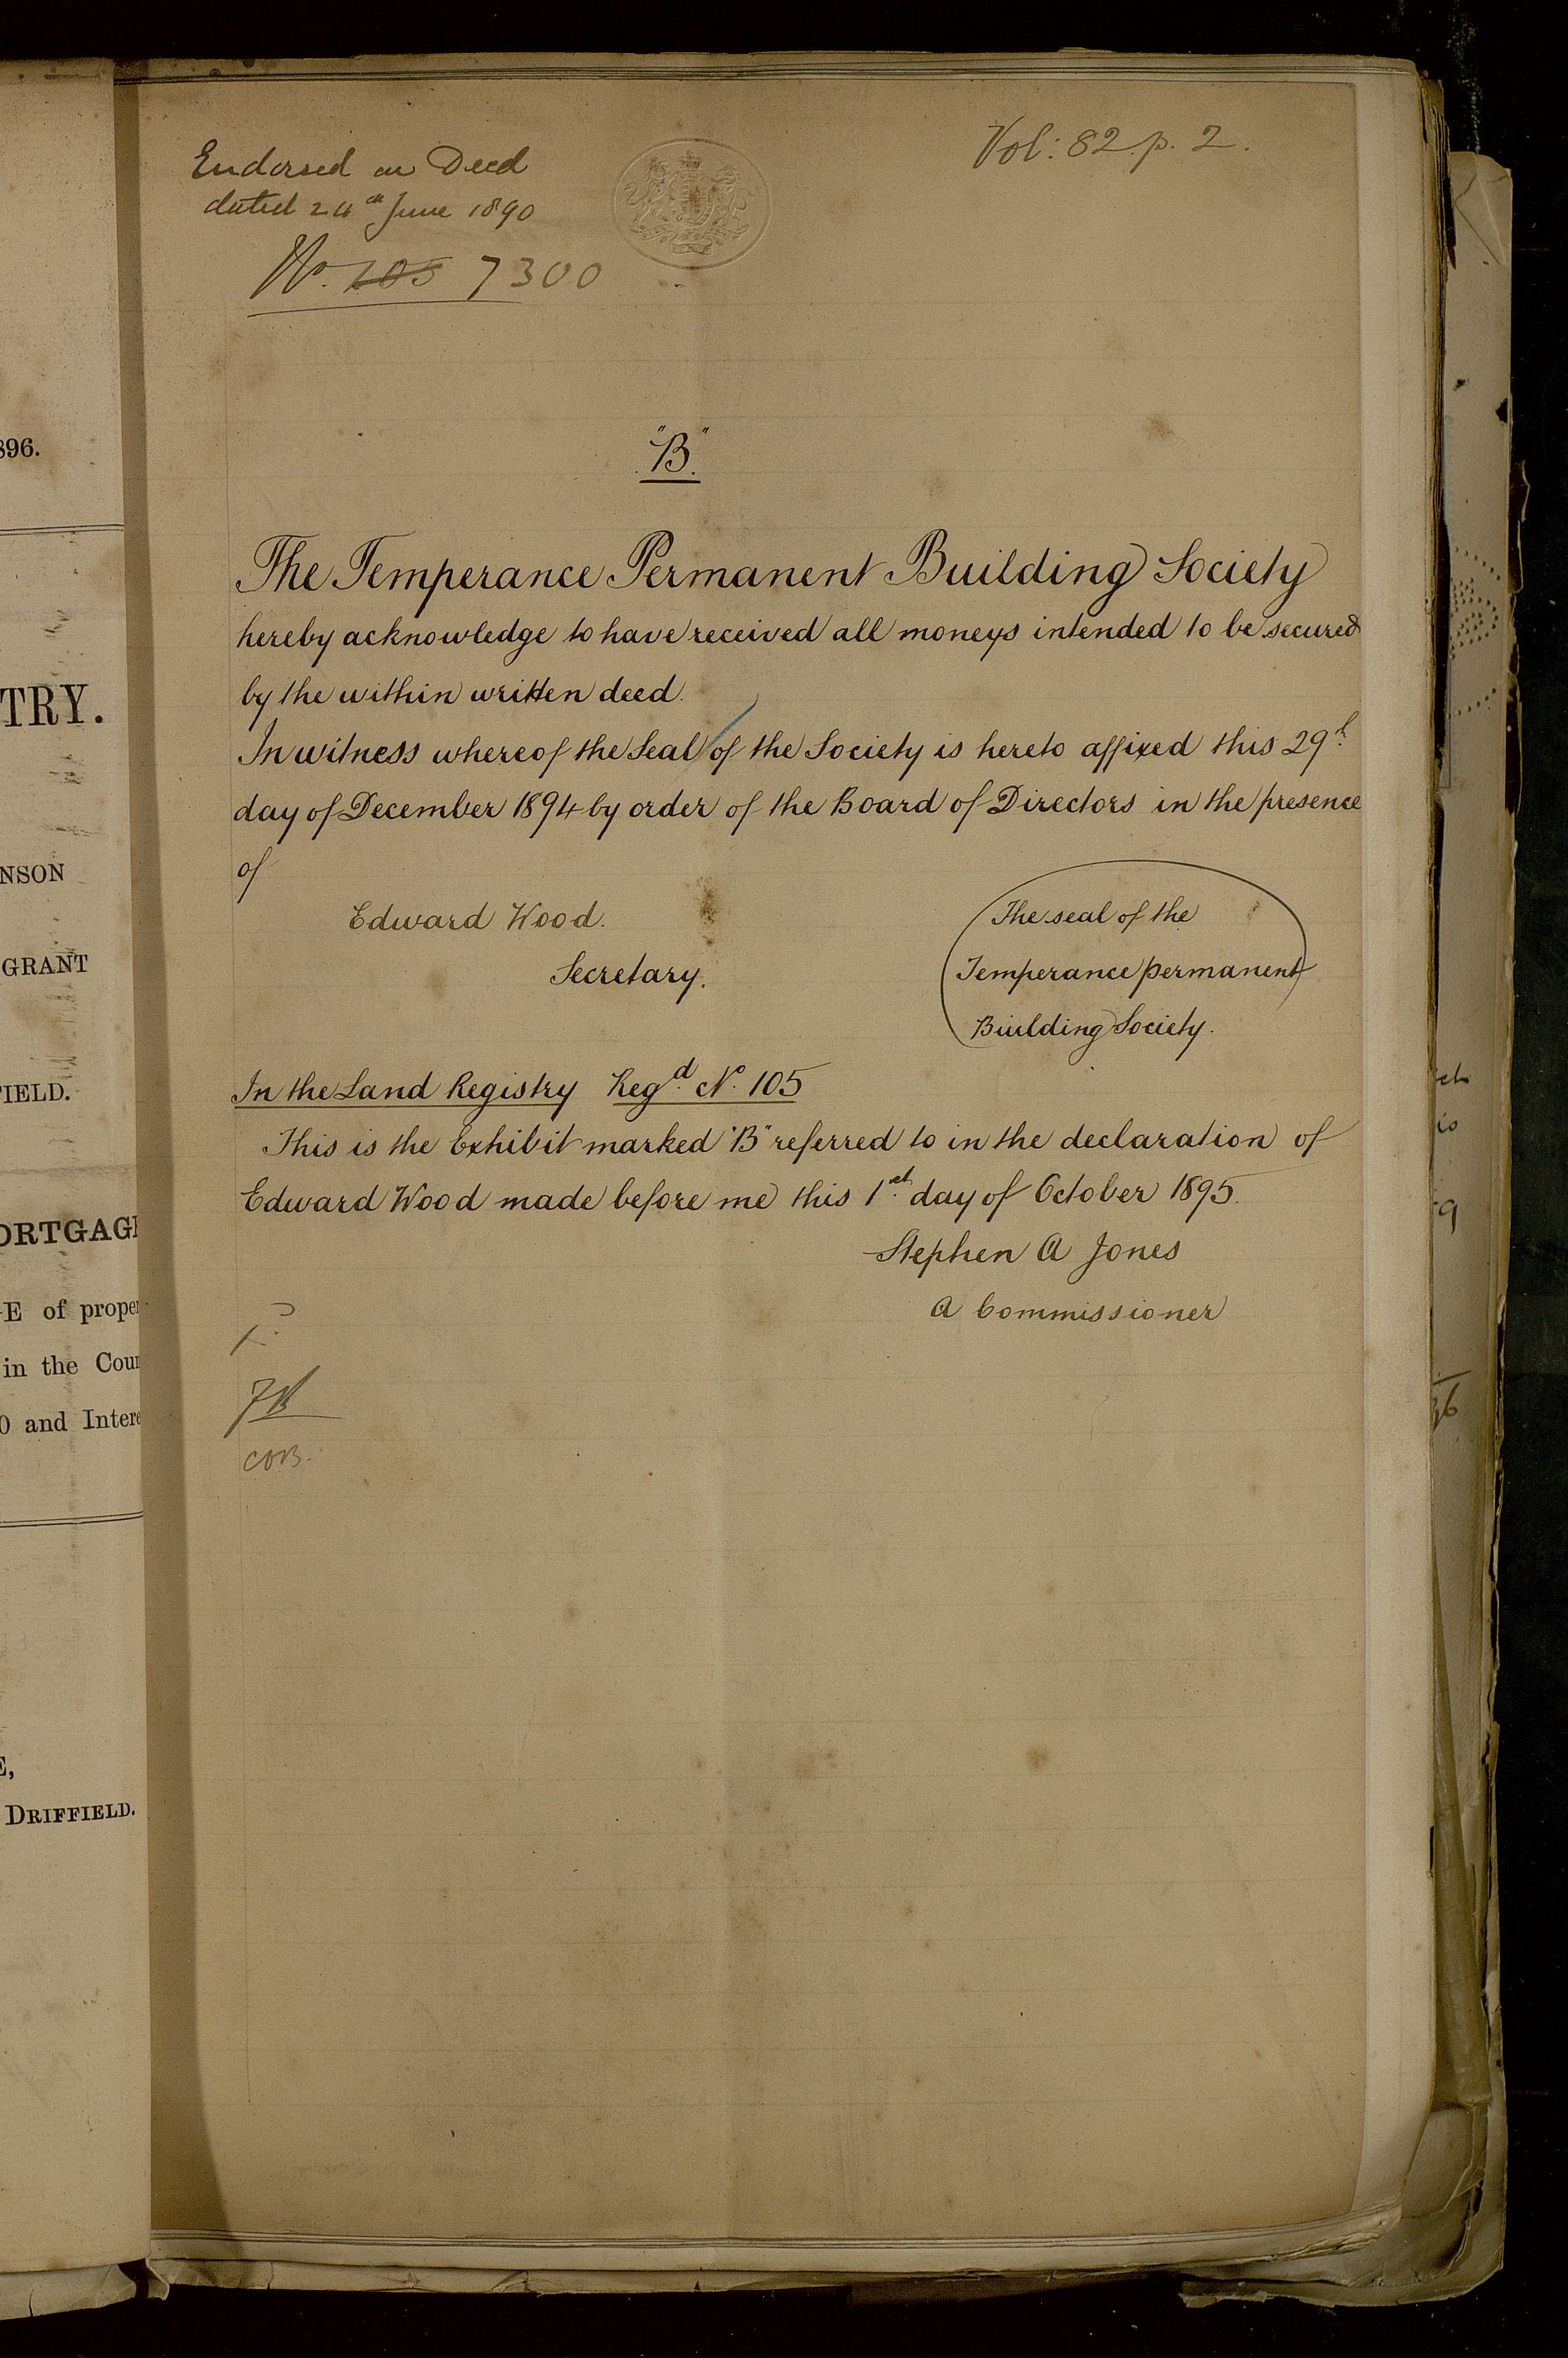 Endorsed on Deed
dated 24th June 1890
No. 105 7300
Vol: 82 p. 2.
"B"
The Temperance Permanent Building Society
hereby acknowledge to have received all moneys intended to be secured
by the within written deed.
In witness whereof the Seal of the Society is hereto affixed this 29th
day of December 1894 by order of the Board of Directors in the presence
of
Edward Wood.
Secretary.
The seal of the
Temperance permanent
Biulding Society.
In the Land Registry Regd. No. 105
This is the Exhibit marked "B" referred to in the declaration of
Edward Wood made before me this 1st day of October 1895.
Stephen A Jones
A Commissioner
896.
TRY.
NSON
GRANT
FIELD.
ORTGAG
E of proper
in the Coun
0 and Intere
E,
DRIFFIELD.